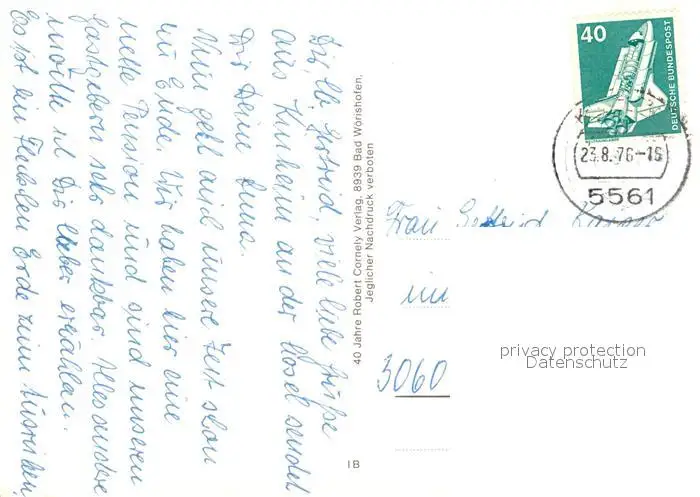 Dir, lb. Gertrud, viele liebe Grüße
aus Kinheim an der Mosel sendet
Dir Deine Anna.
Nun geht auch unsere Zeit schon
zu Ende. Wir haben hier eine
nette Pension und sind unseren
Gastgebern sehr dankbar. Alles andere
möchte ich Dir lieber erzählen.
Es ist ein Fleckchen Erde zum Ausruhen,
40 Jahre Robert Cornely Verlag, 8939 Bad Wörishofen.
Jeglicher Nachdruck verboten
I B
40
DEUTSCHE BUNDESPOST
23.8.76-16
5561
Frau Gertrud
3060
privacy protection
Datenschutz